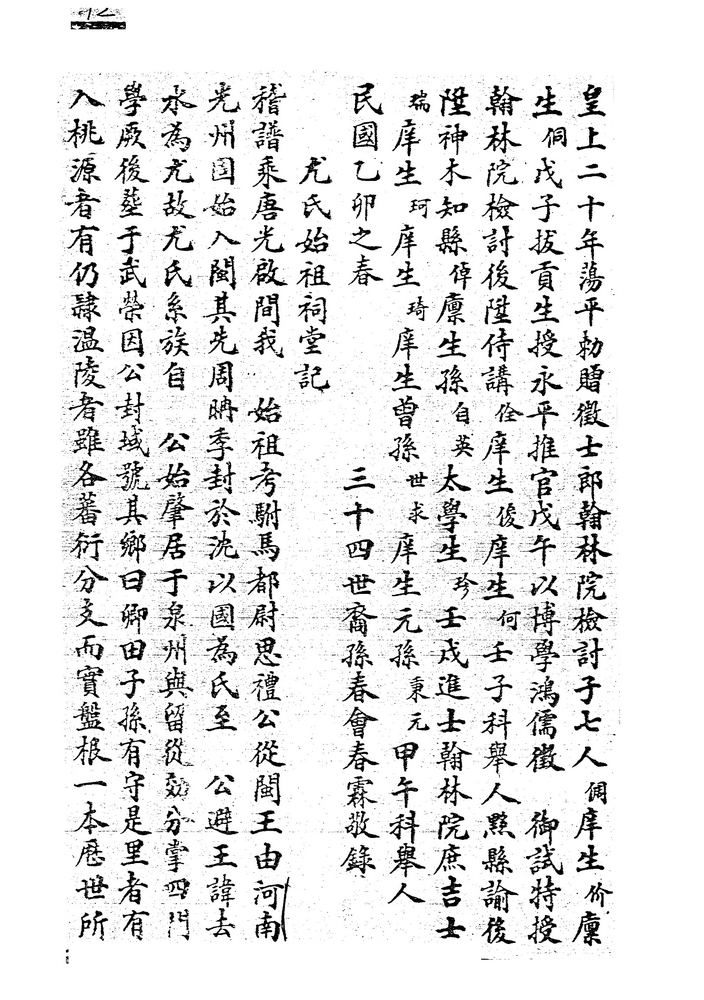 皇上二十年蕩平勑贈徵士郎翰林院檢討子七人侗庠生价廩
生侗戊子拔貢生授永平推官戊午以博學鴻儒徵 御試特授
翰林院檢討後陞侍講佺庠生俊庠生何壬子科舉人㸃縣諭後
陞神木知縣倬廩生孫自英太學生珍壬戌進士翰林院庶吉士
瑞庠生珂庠生琦庠生曾孫世求庠生元孫秉元甲午科舉人
民國乙卯之春 三十四世裔孫春會春霖敬錄
尤氏始祖祠堂記
稽譜乘唐光啟間我 始祖考駙馬都尉思禮公從閩王由河南
光州固始入閩其先周聃季封於沈以國為氏至 公避王諱去
水為尤故尤氏系族自 公始肇居于泉州與留從効分掌四門
學厥後塟于武榮因公封域號其鄉曰卿田子孫有守是里者有
入桃源者有仍隸溫陵者雖各蕃衍分支而實盤根一本歷世所